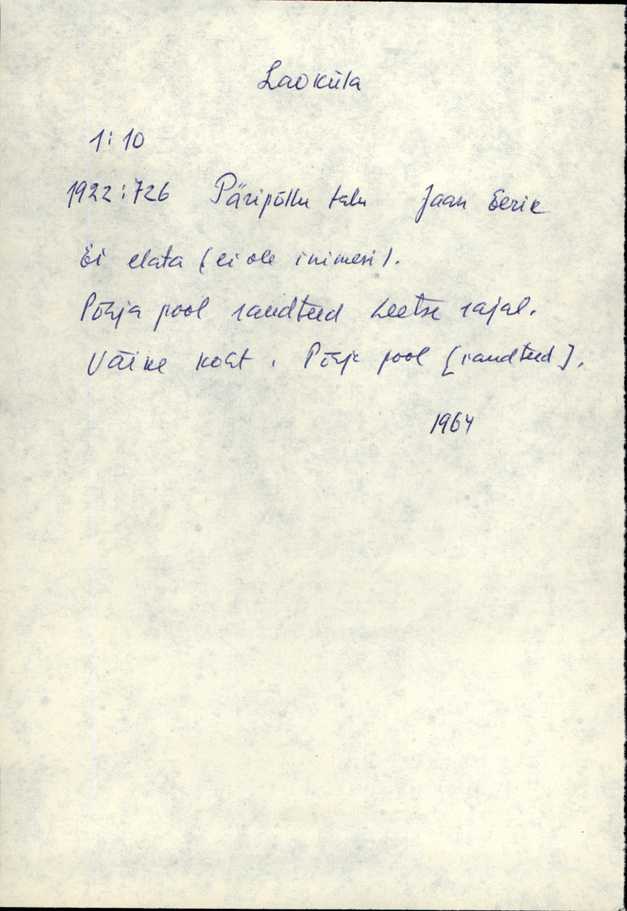 Laoküla
1:10
1922:726 Päripõllu talu Jaan Eerik
Ei elata (ei ole inimesi).
Põhja pool raudteed Leetse rajal.
Väike koht. Põhja pool [raudteed].
1964